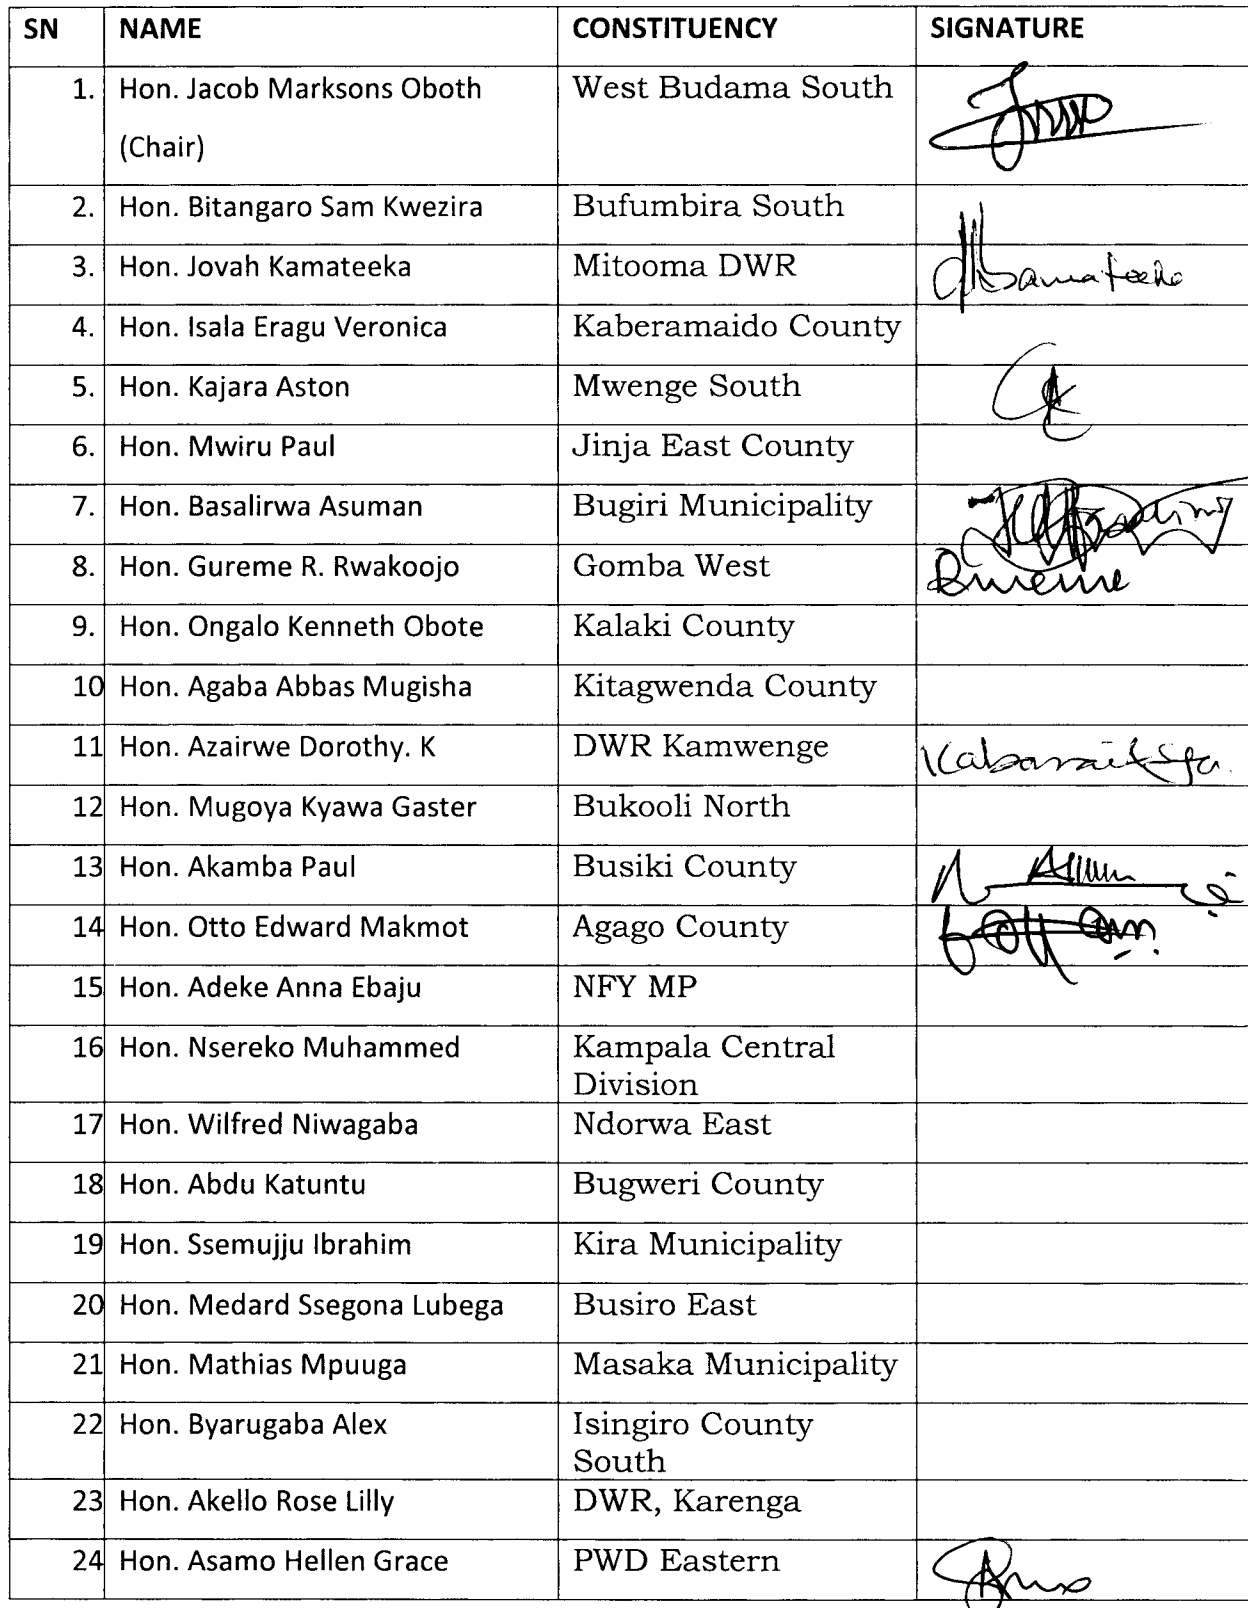 SN NAME CONSTITUENCY SIGNATURE
1. Hon. Jacob Marksons Oboth West Budama South
(Chair)
2. Hon. Bitangaro Sam Kwezira Bufumbira South
3. Hon. Jovah Kamateeka Mitooma DWR
4. Hon. Isala Eragu Veronica Kaberamaido County
5. Hon. Kajara Aston Mwenge South
6. Hon. Mwiru Paul Jinja East County
7. Hon. Basalirwa Asuman Bugiri Municipality
8. Hon. Gureme R. Rwakoojo Gomba West
9. Hon. Ongalo Kenneth Obote Kalaki County
10 Hon. Agaba Abbas Mugisha Kitagwenda County
11 Hon. Azairwe Dorothy. K DWR Kamwenge
12 Hon. Mugoya Kyawa Gaster Bukooli North
13 Hon. Akamba Paul Busiki County
14 Hon. Otto Edward Makmot Agago County
15 Hon. Adeke Anna Ebaju NFY MP
16 Hon. Nsereko Muhammed Kampala Central
Division
17 Hon. Wilfred Niwagaba Ndorwa East
18 Hon. Abdu Katuntu Bugweri County
19 Hon. Ssemujju Ibrahim Kira Municipality
20 Hon. Medard Ssegona Lubega Busiro East
21 Hon. Mathias Mpuuga Masaka Municipality
22 Hon. Byarugaba Alex Isingiro County
South
23 Hon. Akello Rose Lilly DWR, Karenga
24 Hon. Asamo Hellen Grace PWD Eastern